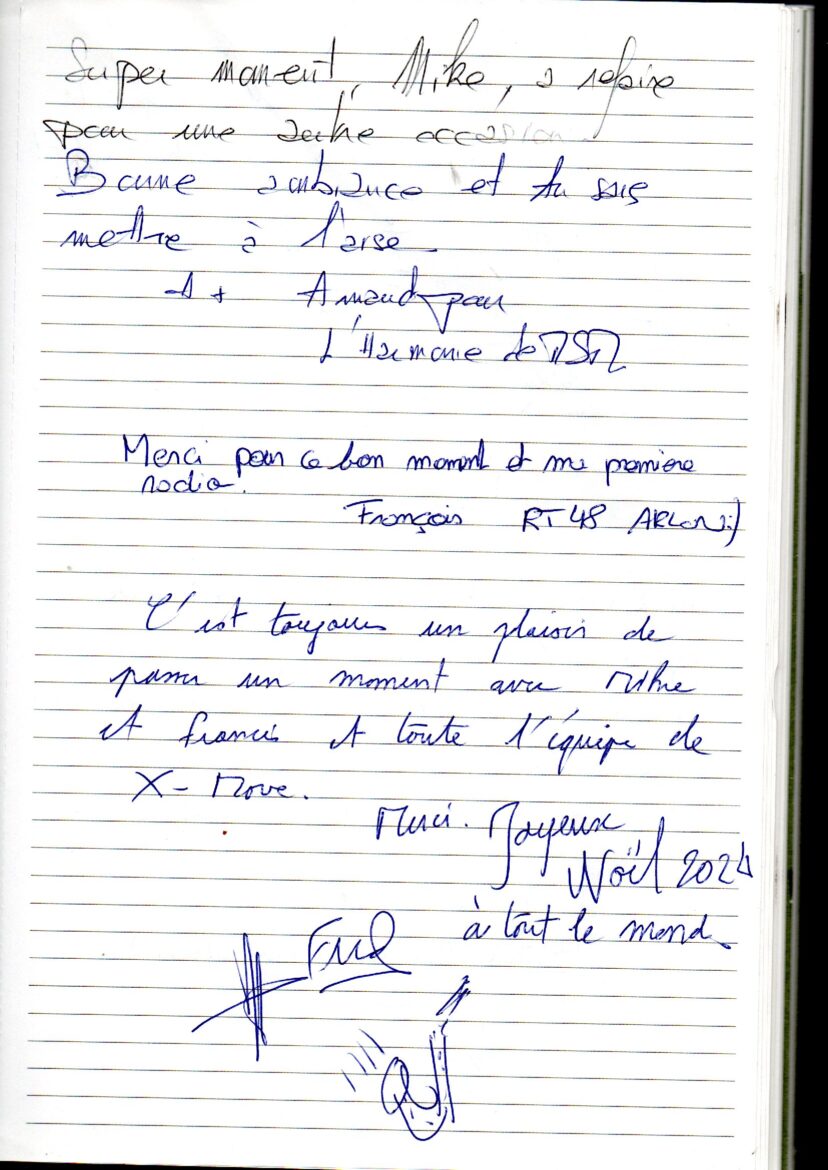 Super moment, Mike, à refaire
pour une autre occasion.
Bonne ambiance et tu sais
mettre à l'aise.
A + Arnaud pour
L'Harmonie de
Merci pour ce bon moment et ma première
radio!
François RT 48 ARLON :)
C'est toujours un plaisir de
passer un moment avec Mike
et francis et toute l'équipe de
X-Move.
Merci. Joyeux
Noël 2024
à tout le monde
Fred